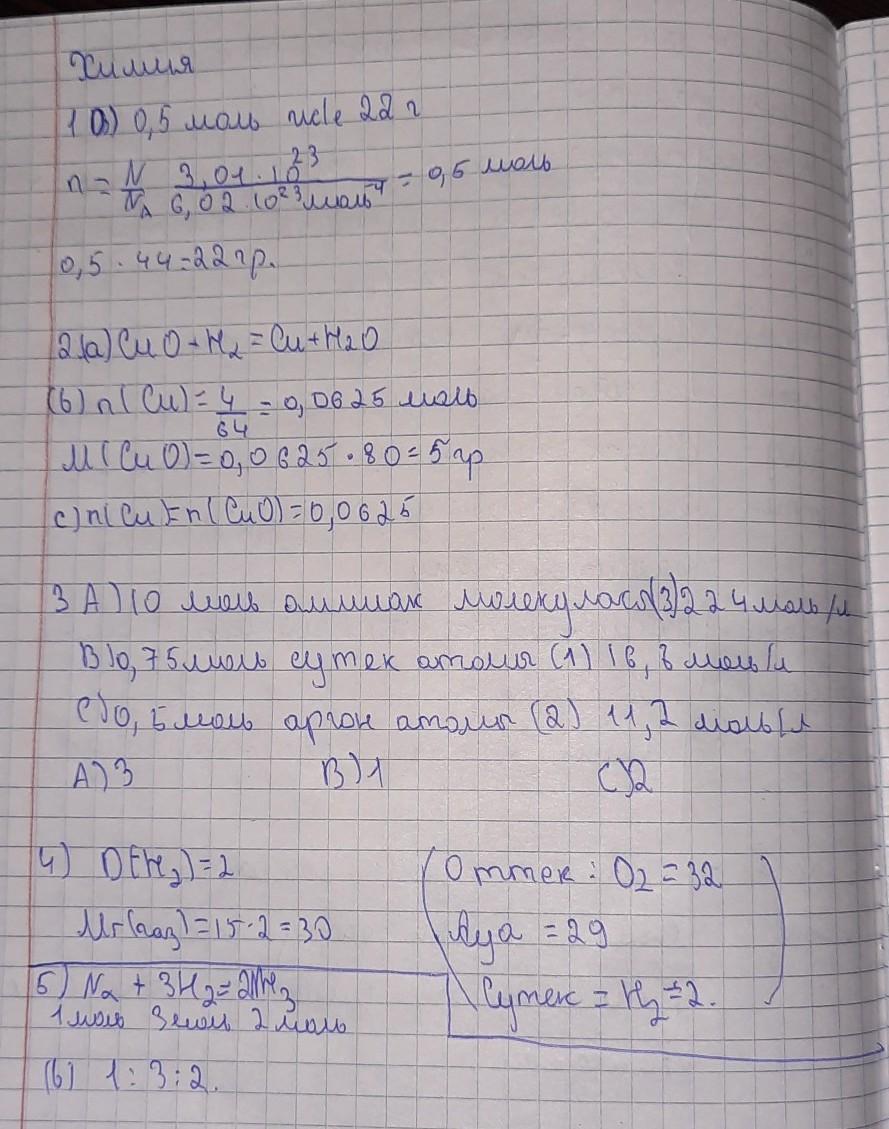 Химия
1 a) 0,5 моль иле 22 г
n = N/N_A 3,01 · 10²³ / 6,02 · 10²³ моль⁻¹ = 0,5 моль
0,5 · 44 = 22 гр.
2.(a) CuO + H₂ = Cu + H₂O
(b) n(Cu) = 4/64 = 0,0625 моль
M(CuO) = 0,0625 · 80 = 5 гр
c) n(Cu) = n(CuO) = 0,0625
3 A) 10 моль аммиак молекуласы (3) 224 моль/л
B) 0,75 моль сутек атомы (1) 16,8 моль/л
C) 0,5 моль аргон атомы (2) 11,2 моль/л
A) 3 B) 1 C) 2
4) D(H₂) = 2
Mr(газ) = 15 · 2 = 30
Оттек : O₂ = 32
Ауа = 29
Сутек = H₂ = 2.
5) N₂ + 3H₂ = 2NH₃
1 моль 3 моль 2 моль
(b) 1 : 3 : 2.